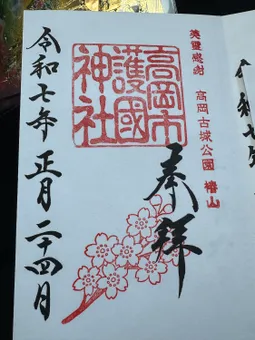 英靈感謝 高岡古城公園 椿山
高岡市
護國
神社
奉拝
令和七年正月二十四月
令和七年